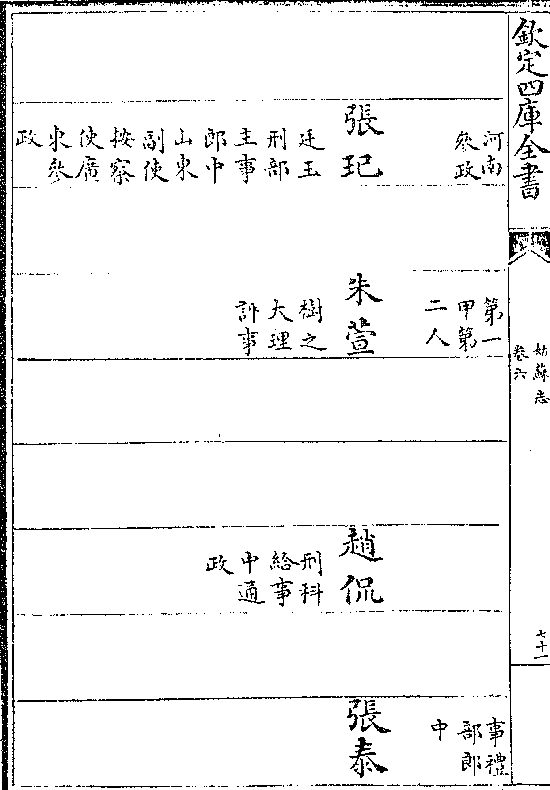 欽定四庫全書
姑蘇志
卷六
七十一
河南
參政
張玘
廷玉
刑部
主事
郎中
山東
副使
按察
使廣
東參
政
第一
甲第
二人
朱萱
樹之
大理
評事
趙侃
刑科
給事
中通
政
事禮
部郎
中
張泰